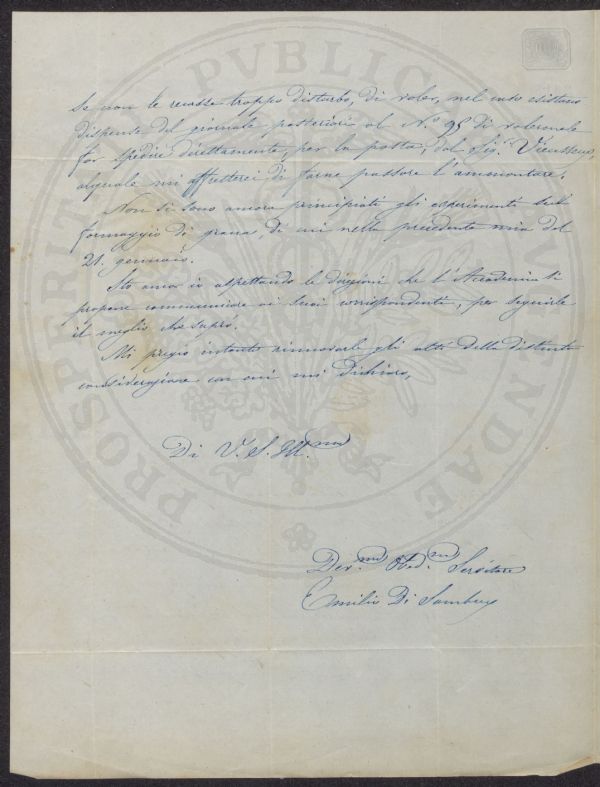 Se non le recasse troppo disturbo, di voler, nel caso esistano
dispense del giornale posteriori al N.º 95 di volersele
far spedire direttamente, per la posta, dal Sig. Vieusseux,
al quale mi affretterei di farne passare l'ammontare.
Non si sono ancora principiati gli esperimenti sul
formaggio di grana, di cui nella precedente mia del
21. gennaio.
Sto ancor io aspettando le che l'Accademia si
propone comunicare ai suoi corrispondenti, per seguirle
il meglio che saprò.
Mi pregio intanto rinnovarle gli atti della distinta
considerazione con cui mi dichiaro,
Di V. S. Ill.ma
Dev.mo Obb.mo Servitore
Emilio Di Sambuy
PROSPERITATI PVBLICAE AVGENDAE